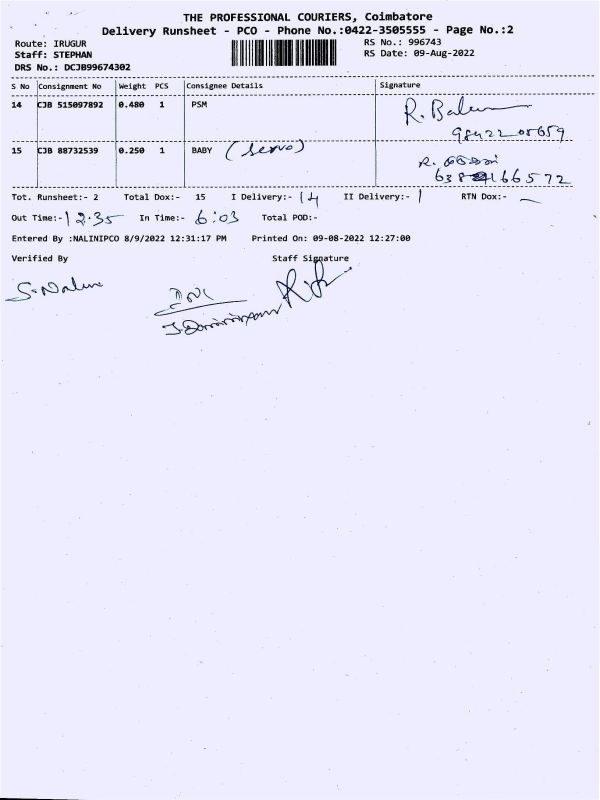 THE PROFESSIONAL COURIERS, Coimbatore
Delivery Runsheet - PCO - Phone No.:0422-3505555 - Page No.:2
Route: IRUGUR
RS No.: 996743
Staff: STEPHAN
RS Date: 09-Aug-2022
DRS No.: DCJB99674302
S No Consignment No Weight PCS Consignee Details Signature
14 CJB 515097892 0.480 1 PSM R. Balu
15 CJB 88732539 0.250 1 BABY (Servo) R.
Tot. Runsheet:- 2 Total Dox:- 15 I Delivery:- 14 II Delivery:- 1 RTN Dox:- —
Out Time:- 12.35 In Time:- 6:03 Total POD:-
Entered By :NALINIPCO 8/9/2022 12:31:17 PM Printed On: 09-08-2022 12:27:00
Verified By Staff Signature
S. Nalini